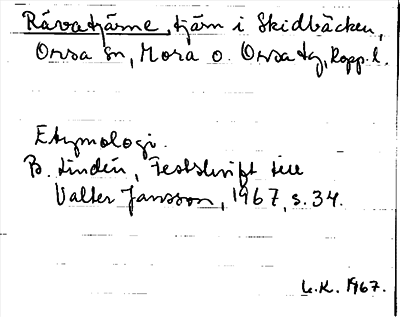 Rävatjärne, tjärn i Skidbäcken,
Orsa sn, Mora o. Orsa tg, Kopp. l.
Etymologi.
B. Lindén, Festskrift till
Valter Jansson, 1967, s. 34.
L.K. 1967.